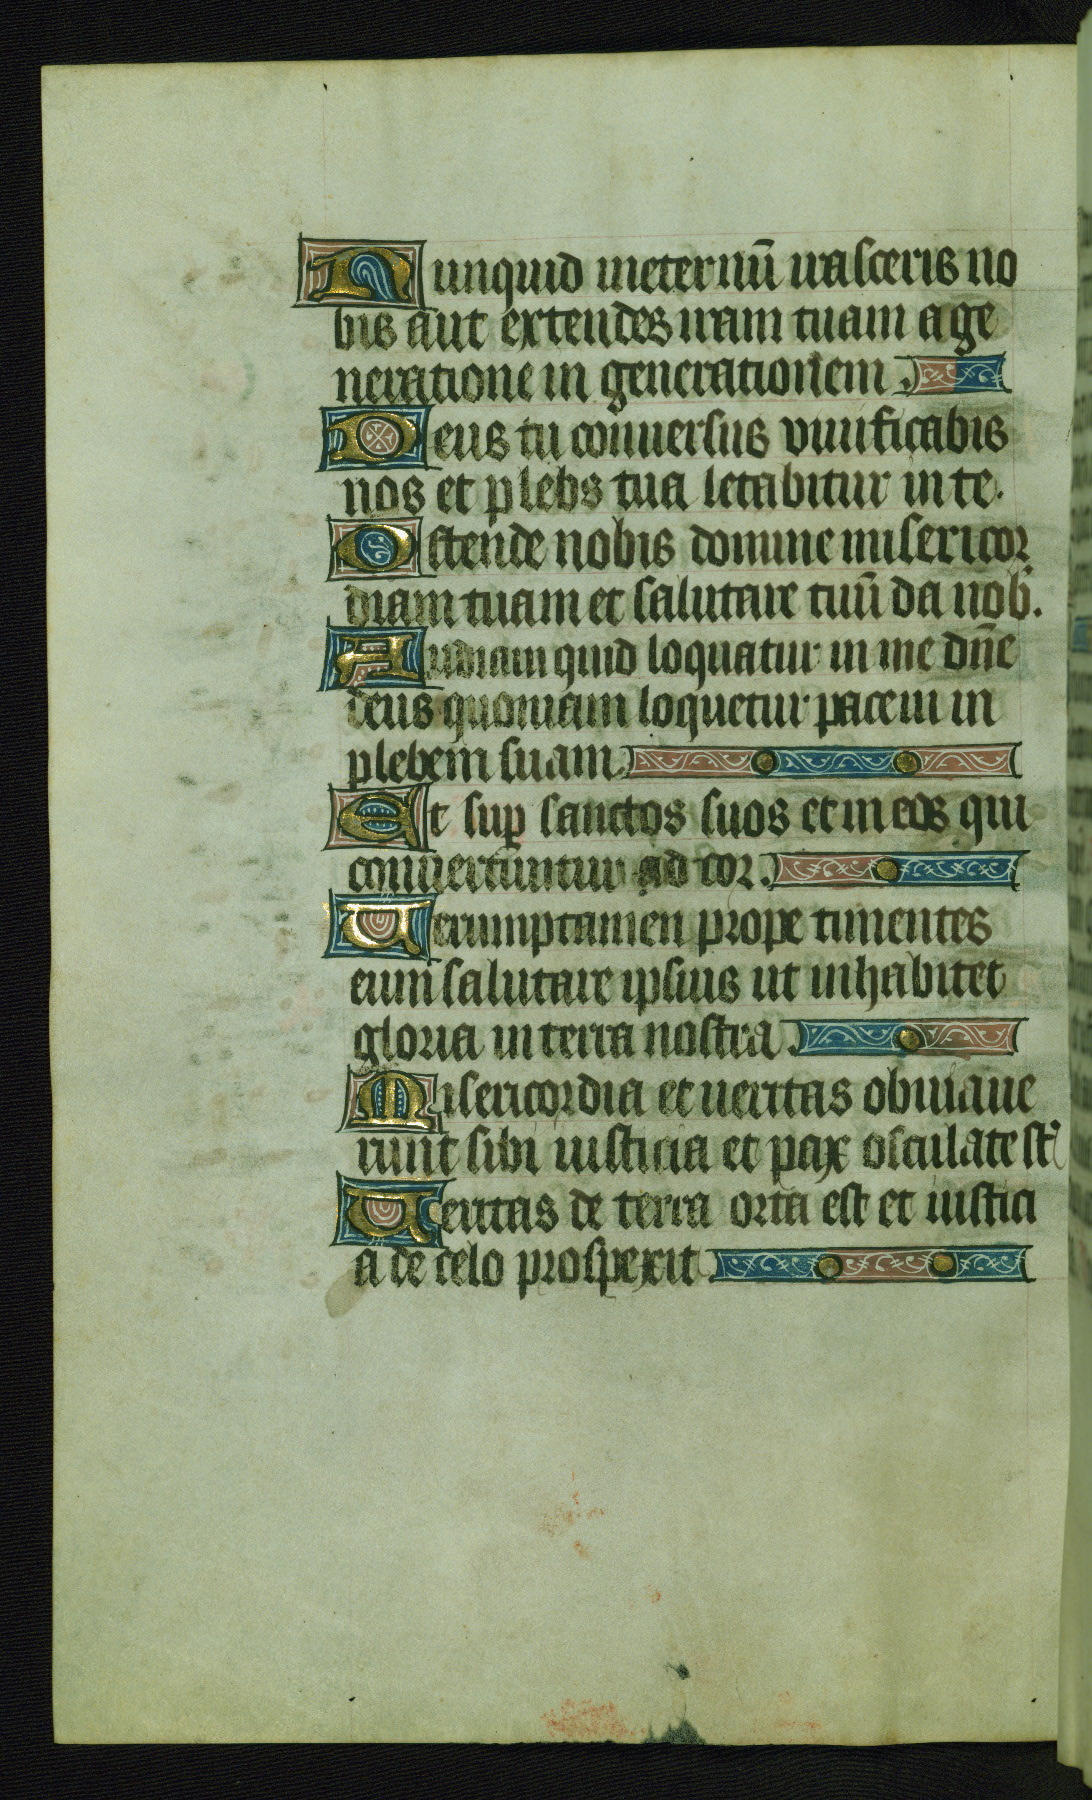 Nunquid ineternū irasceris no
bis aut extendes iram tuam a ge
neratione in generationem.
Deus tu conuersus viuificabis
nos et plebs tua letabitur in te.
Ostende nobis domine misericor
diam tuam et salutare tuū da nob̄.
Audiam quid loquatur in me dn̄e
deus quoniam loquetur pacem in
plebem suam.
Et sup̱ sanctos suos et in eos qui
conuertuntur ad cor.
Uerumptamen prope timentes
eum salutare ipsius ut inhabitet
gloria in terra nostra.
Misericordia et ueritas obuiaue
runt sibi iusticia et pax osculate st̄
Ueritas de terra orta est et iustici
a de celo prospexit